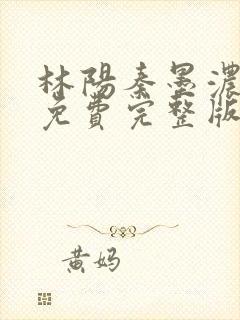 林陽秦墨濃
免費完整版
黄妈